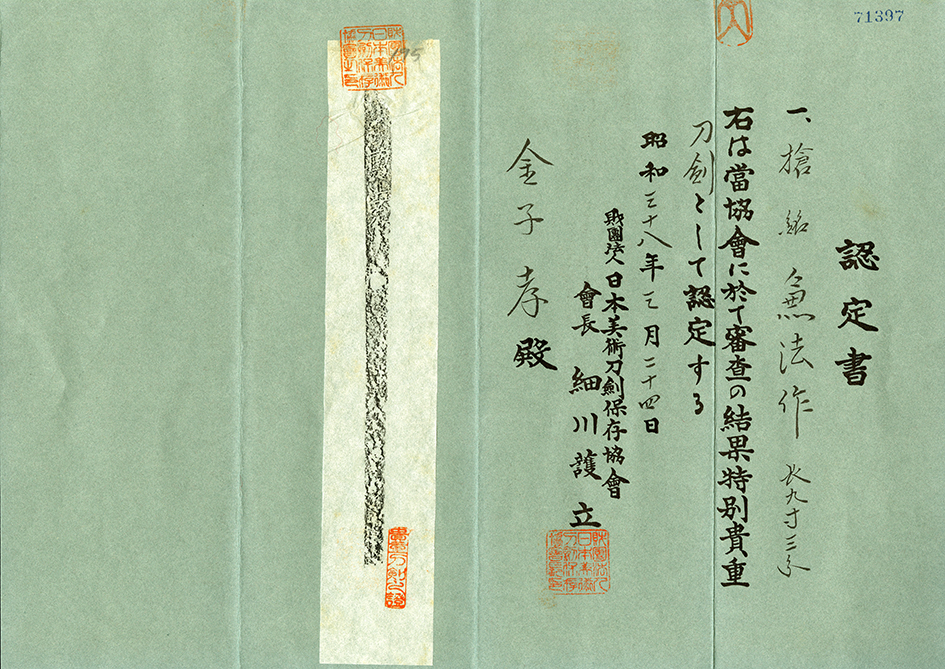 71397
認定書
一、槍 銘 兼法作 長九寸三分
右は當協會に於て審査の結果特別貴重
刀剣として認定する
昭和三十八年三月二十四日
財團法人 日本美術刀劍保存協會
會長 細川護立
金子孝殿
195